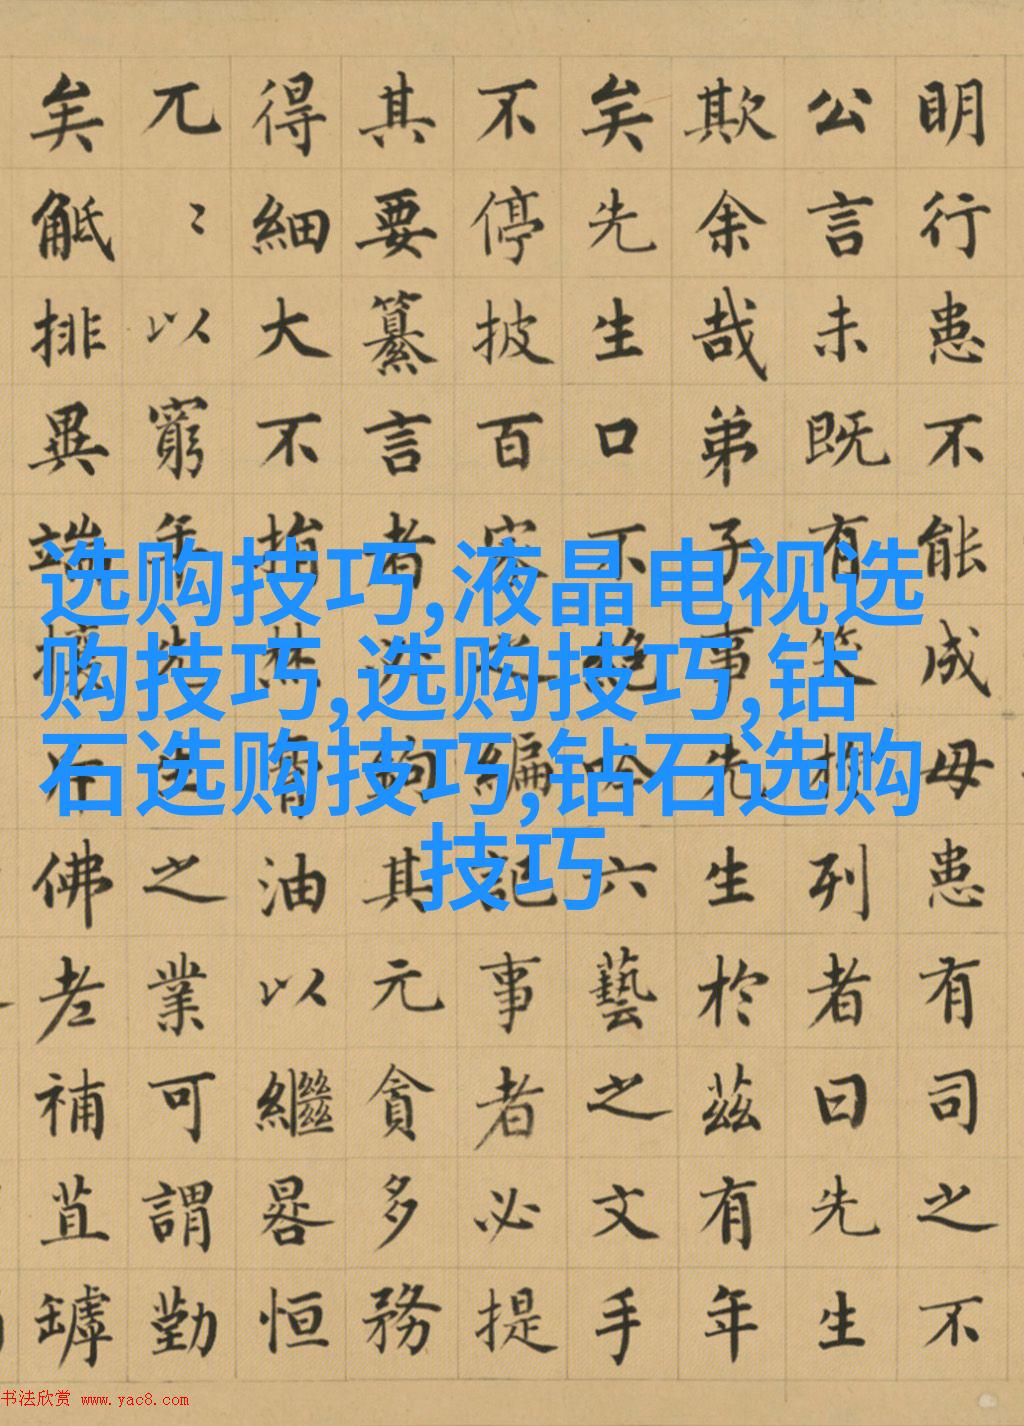 明行患不能成毋患有司之不
公言未既有笑於列者曰先生
欺余哉弟子事先生於茲有年
矣先生口不絶吟六藝之文手
不停披百家之編記事者必提
其要纂言者必鉤其元貪多務
得細大不捐焚膏油以繼晷恒
兀〻以窮年先生之業可謂勤
矣觝排異端攘斥佛老補苴罅
选购技巧,液晶电视选
购技巧,选购技巧,钻
石选购技巧,钻石选购
技巧
书法欣赏 www.yac8.com